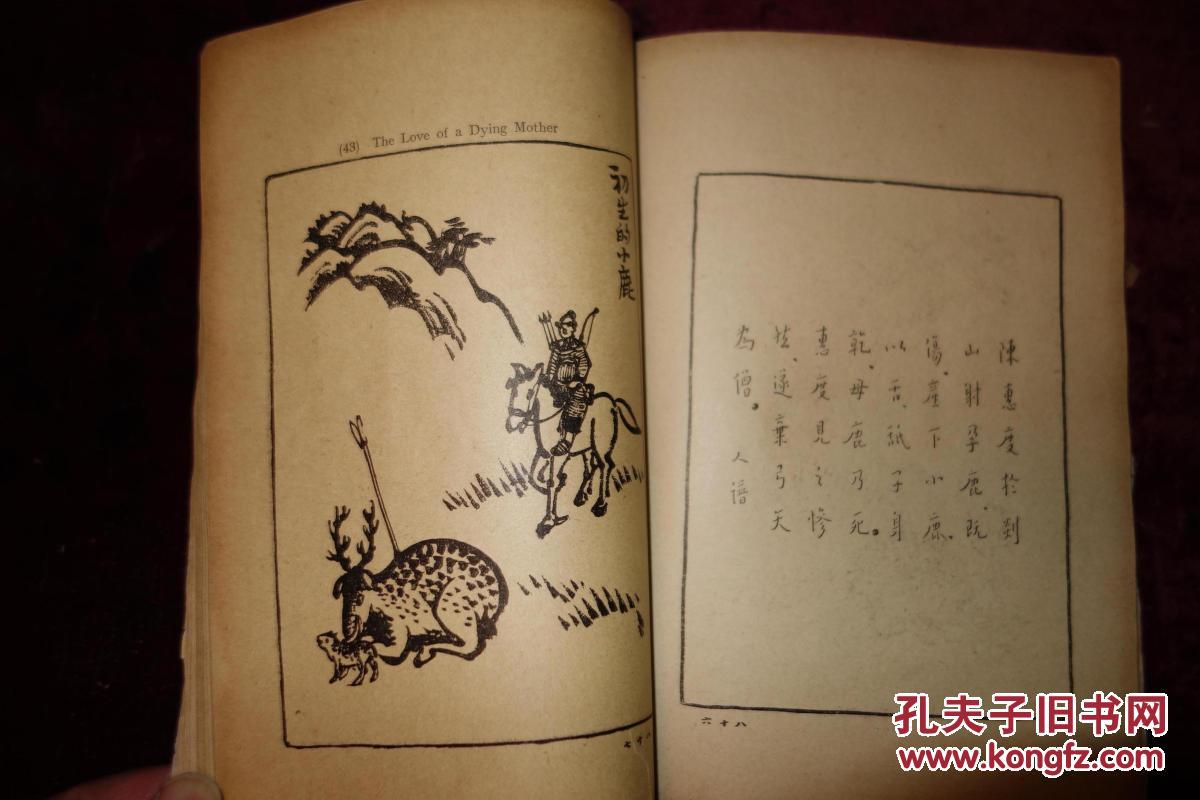 (43) The Love of a Dying Mother
初生的小鹿
陳惠度於剡
山射孕鹿、既
傷、產下小鹿、
以舌、舐子身
乾、母鹿乃死。
惠度見之慘
然、遂棄弓矢
為僧。 人譜
八十七
八十六
孔夫子旧书网
www.kongfz.com